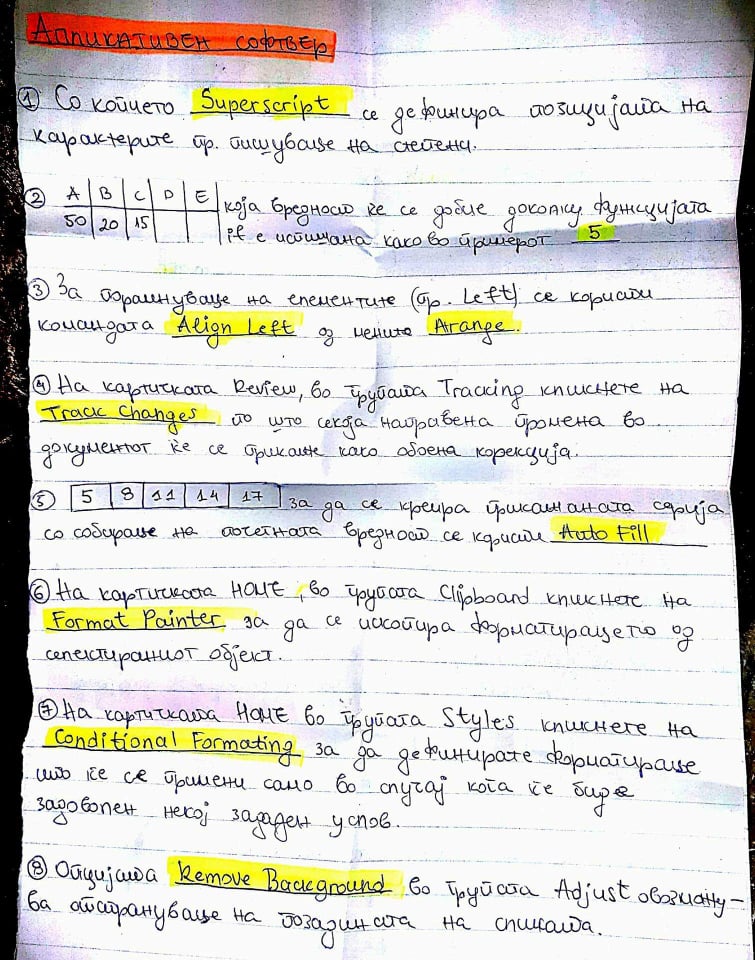 Апликативен софтвер
① Со копчето Superscript се дефинира позицијата на
карактерите пр. пишување на степени.
② A B C D E која вредност ќе се добие доколку функцијата
50 20 15 if е испишана како во примерот 5
③ За порамнување на елементите (пр. Left) се користи
командата Align Left од менито Arange.
④ На картичката Review, во групата Tracking кликнете на
Track Changes по што секоја направена промена во
документот ќе се прикаже како обоена корекција.
⑤ 5 8 11 14 17 за да се креира прикажаната серија
со собирање на почетната вредност се користи Auto Fill
⑥ На картичката HOME, во групата Clipboard кликнете на
Format Painter за да се ископира форматирањето од
селектираниот објект.
⑦ На картичката HOME во групата Styles кликнете на
Conditional Formating за да дефинирате форматирање
што ќе се примени само во случај кога ќе биде
задоволен некој зададен услов.
⑧ Опцијата Remove Background во групата Adjust овозможу-
ва отстранување на позадината на сликата.